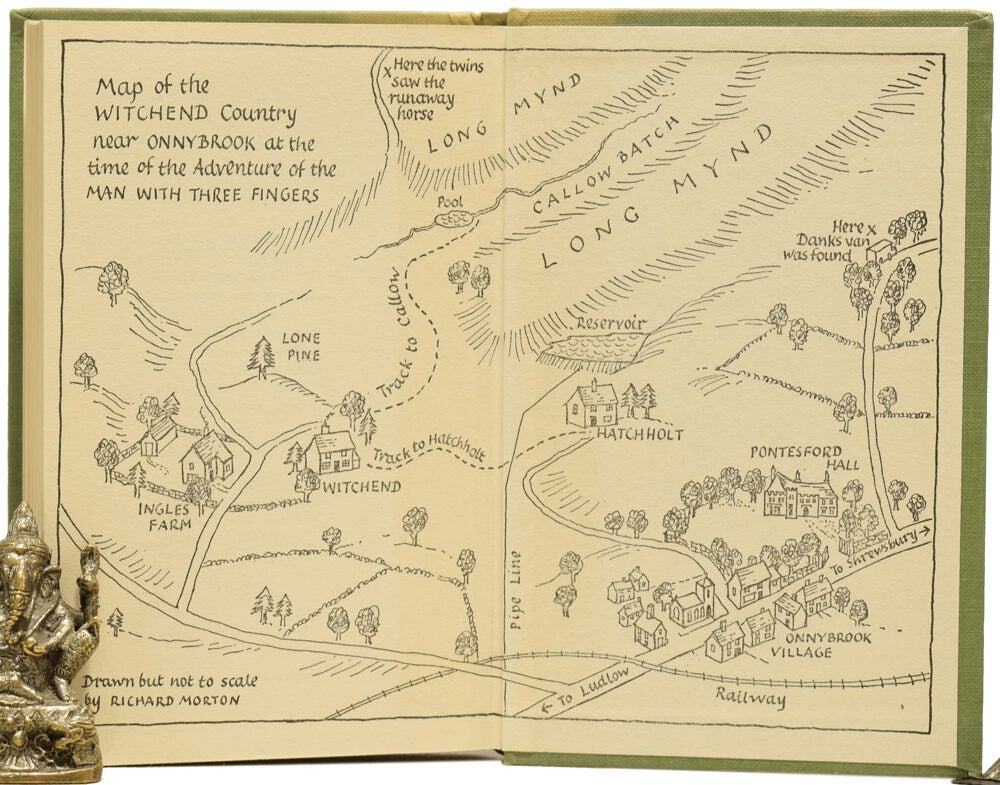 Map of the
WITCHEND Country
near ONNYBROOK at the
time of the Adventure of the
MAN WITH THREE FINGERS
x Here the twins
saw the
runaway
horse
LONG MYND
CALLOW BATCH
LONG MYND
Pool
Here x
Danks van
was found
Track to Callow
LONE
PINE
Reservoir
HATCHHOLT
Track to Hatchholt
WITCHEND
INGLES
FARM
PONTESFORD
HALL
To Shrewsbury →
Pipe Line
ONNYBROOK
VILLAGE
← To Ludlow
Railway
Drawn but not to scale
by RICHARD MORTON